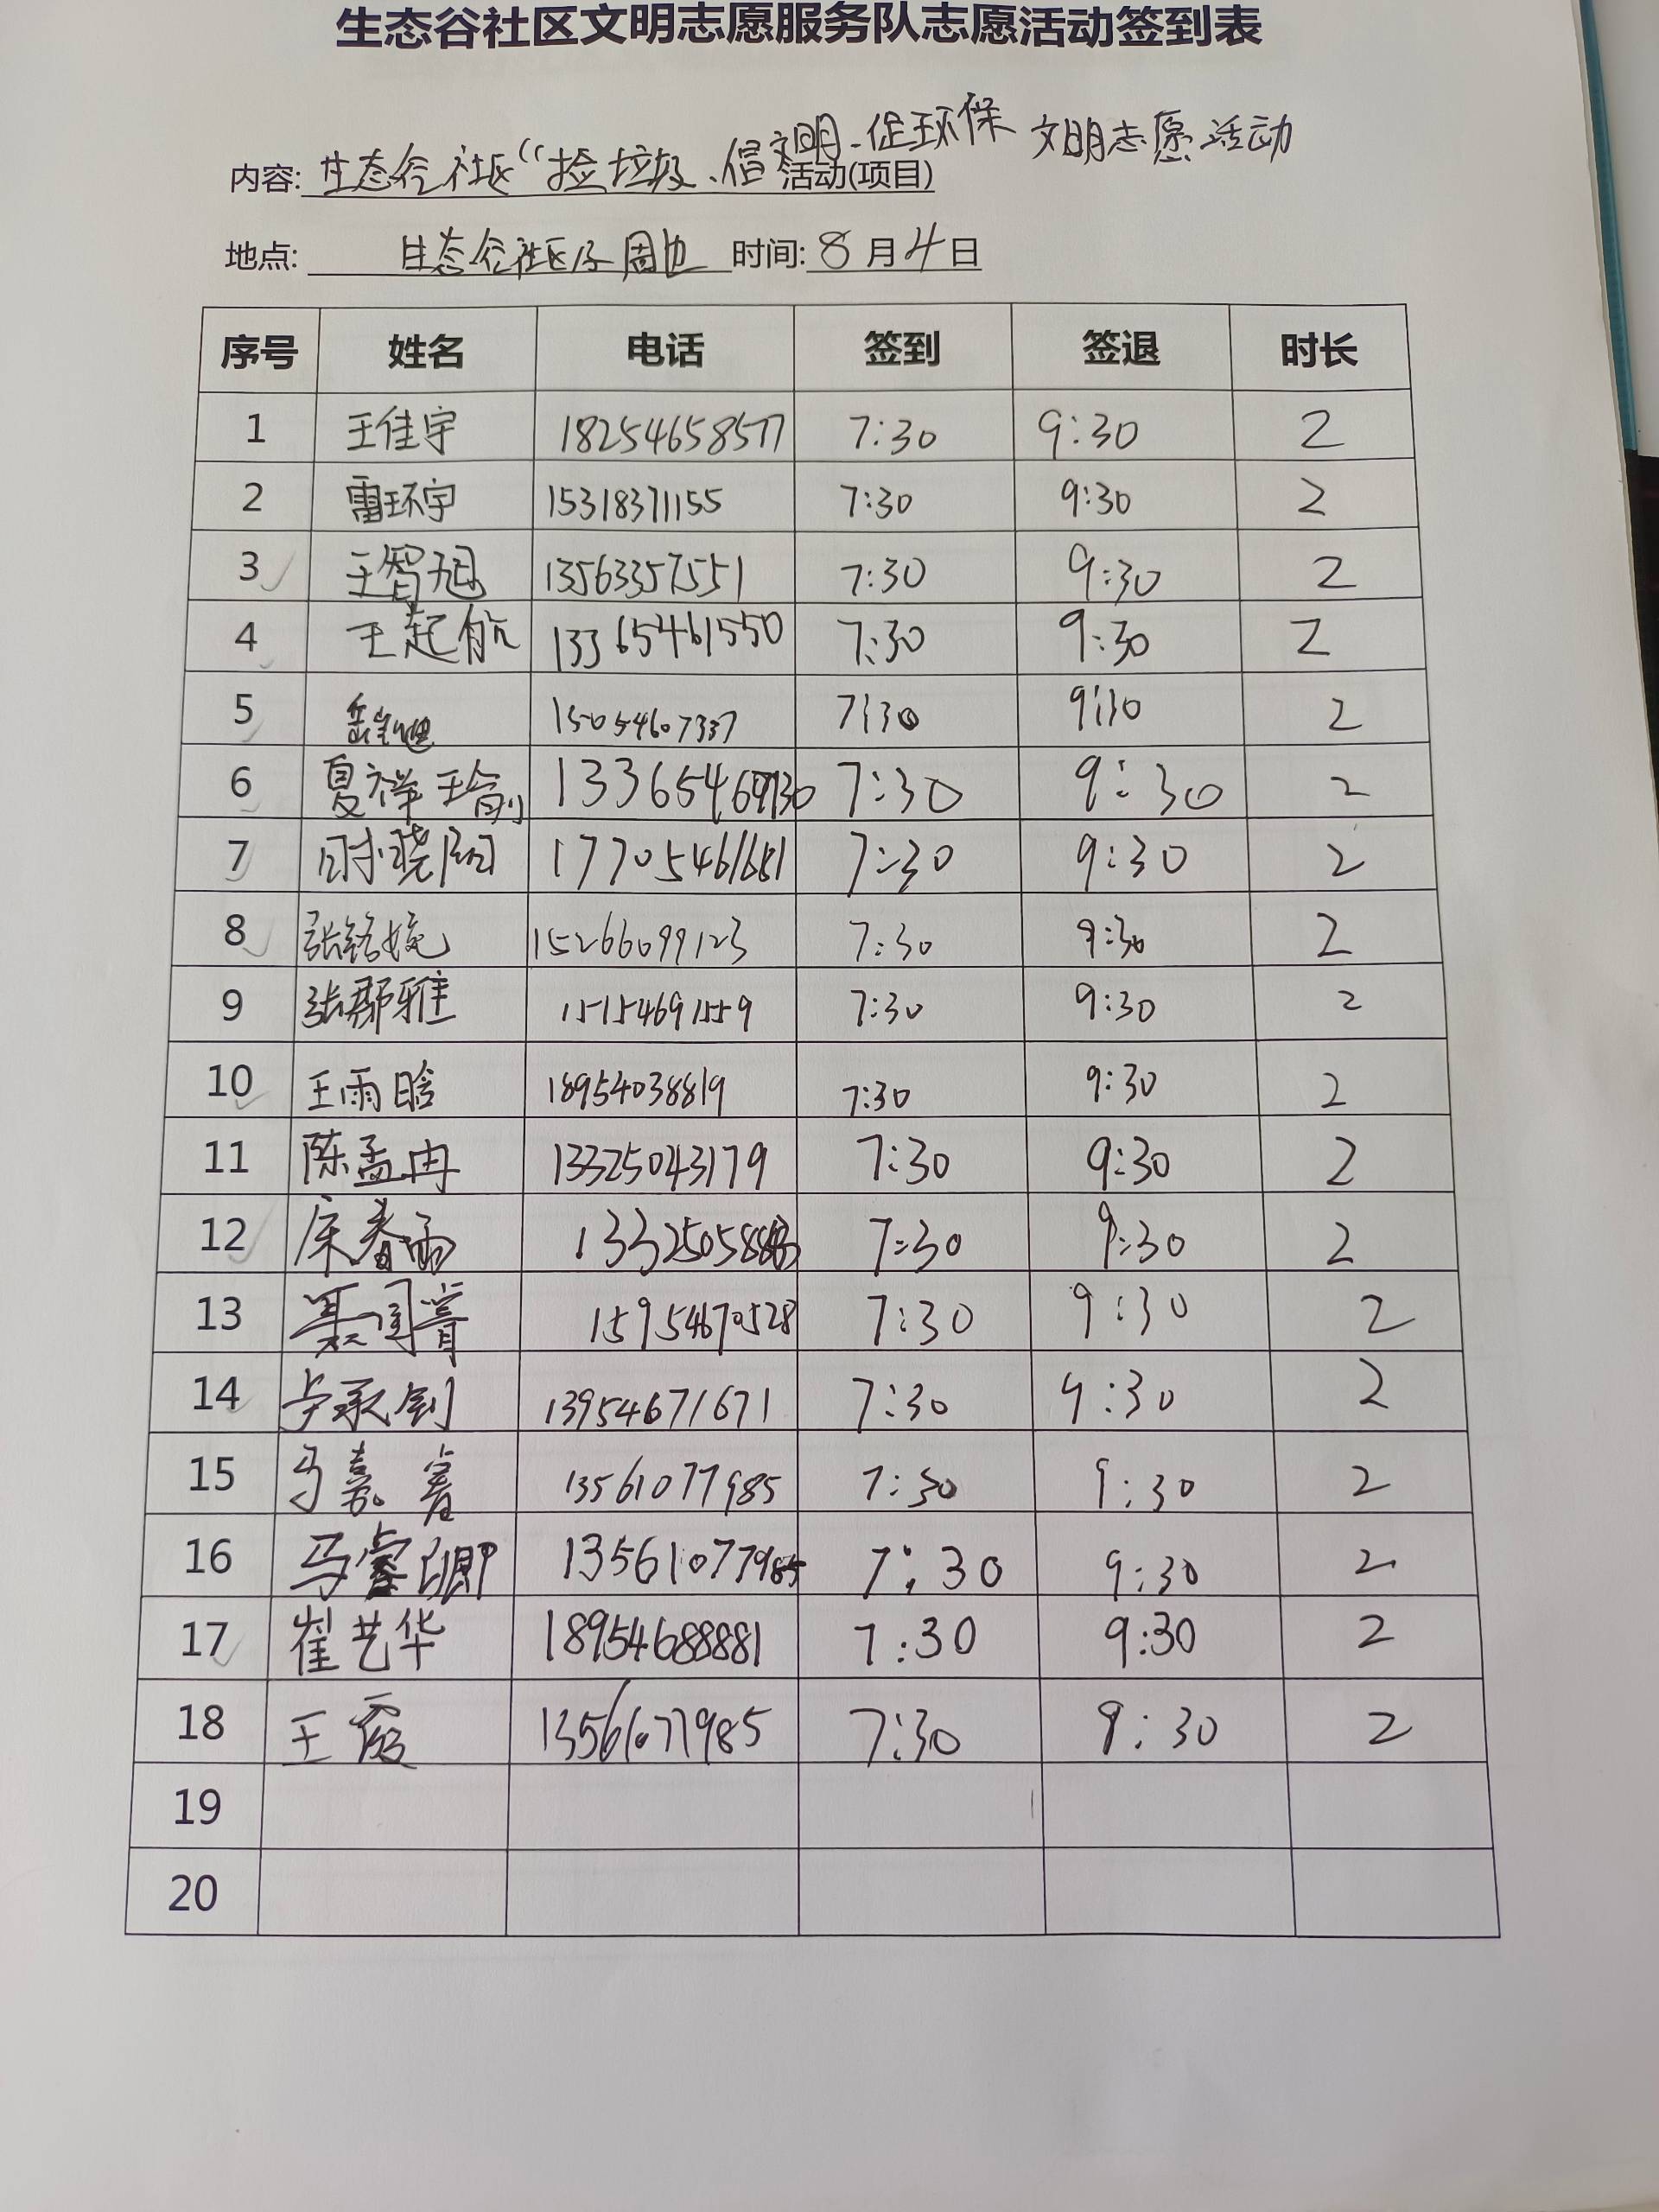 生态谷社区文明志愿服务队志愿活动签到表
内容: 生态谷社区“捡垃圾、倡文明、促环保 文明志愿活动 活动(项目)
地点: 生态谷社区及周边 时间: 8月4日
序号 姓名 电话 签到 签退 时长
1 王佳宇 18254658577 7:30 9:30 2
2 雷环宇 15318371155 7:30 9:30 2
3 王智旭 13563357551 7:30 9:30 2
4 王起航 13365461550 7:30 9:30 2
5 15054607337 7:30 9:30 2
6 夏祥 7:30 9:30 2
7 时晓阳 17705461681 7:30 9:30 2
8 张铭婉 15266099123 7:30 9:30 2
9 张郡雅 15154691559 7:30 9:30 2
10 王雨晗 18954038819 7:30 9:30 2
11 陈孟冉 13325043179 7:30 9:30 2
12 春雨 7:30 9:30 2
13 15954670528 7:30 9:30 2
14 卢承钊 13954671671 7:30 9:30 2
15 马嘉睿 13561077985 7:30 9:30 2
16 马睿卿 13561077985 7:30 9:30 2
17 崔艺华 18954688881 7:30 9:30 2
18 王霞 13561077985 7:30 9:30 2
19
20